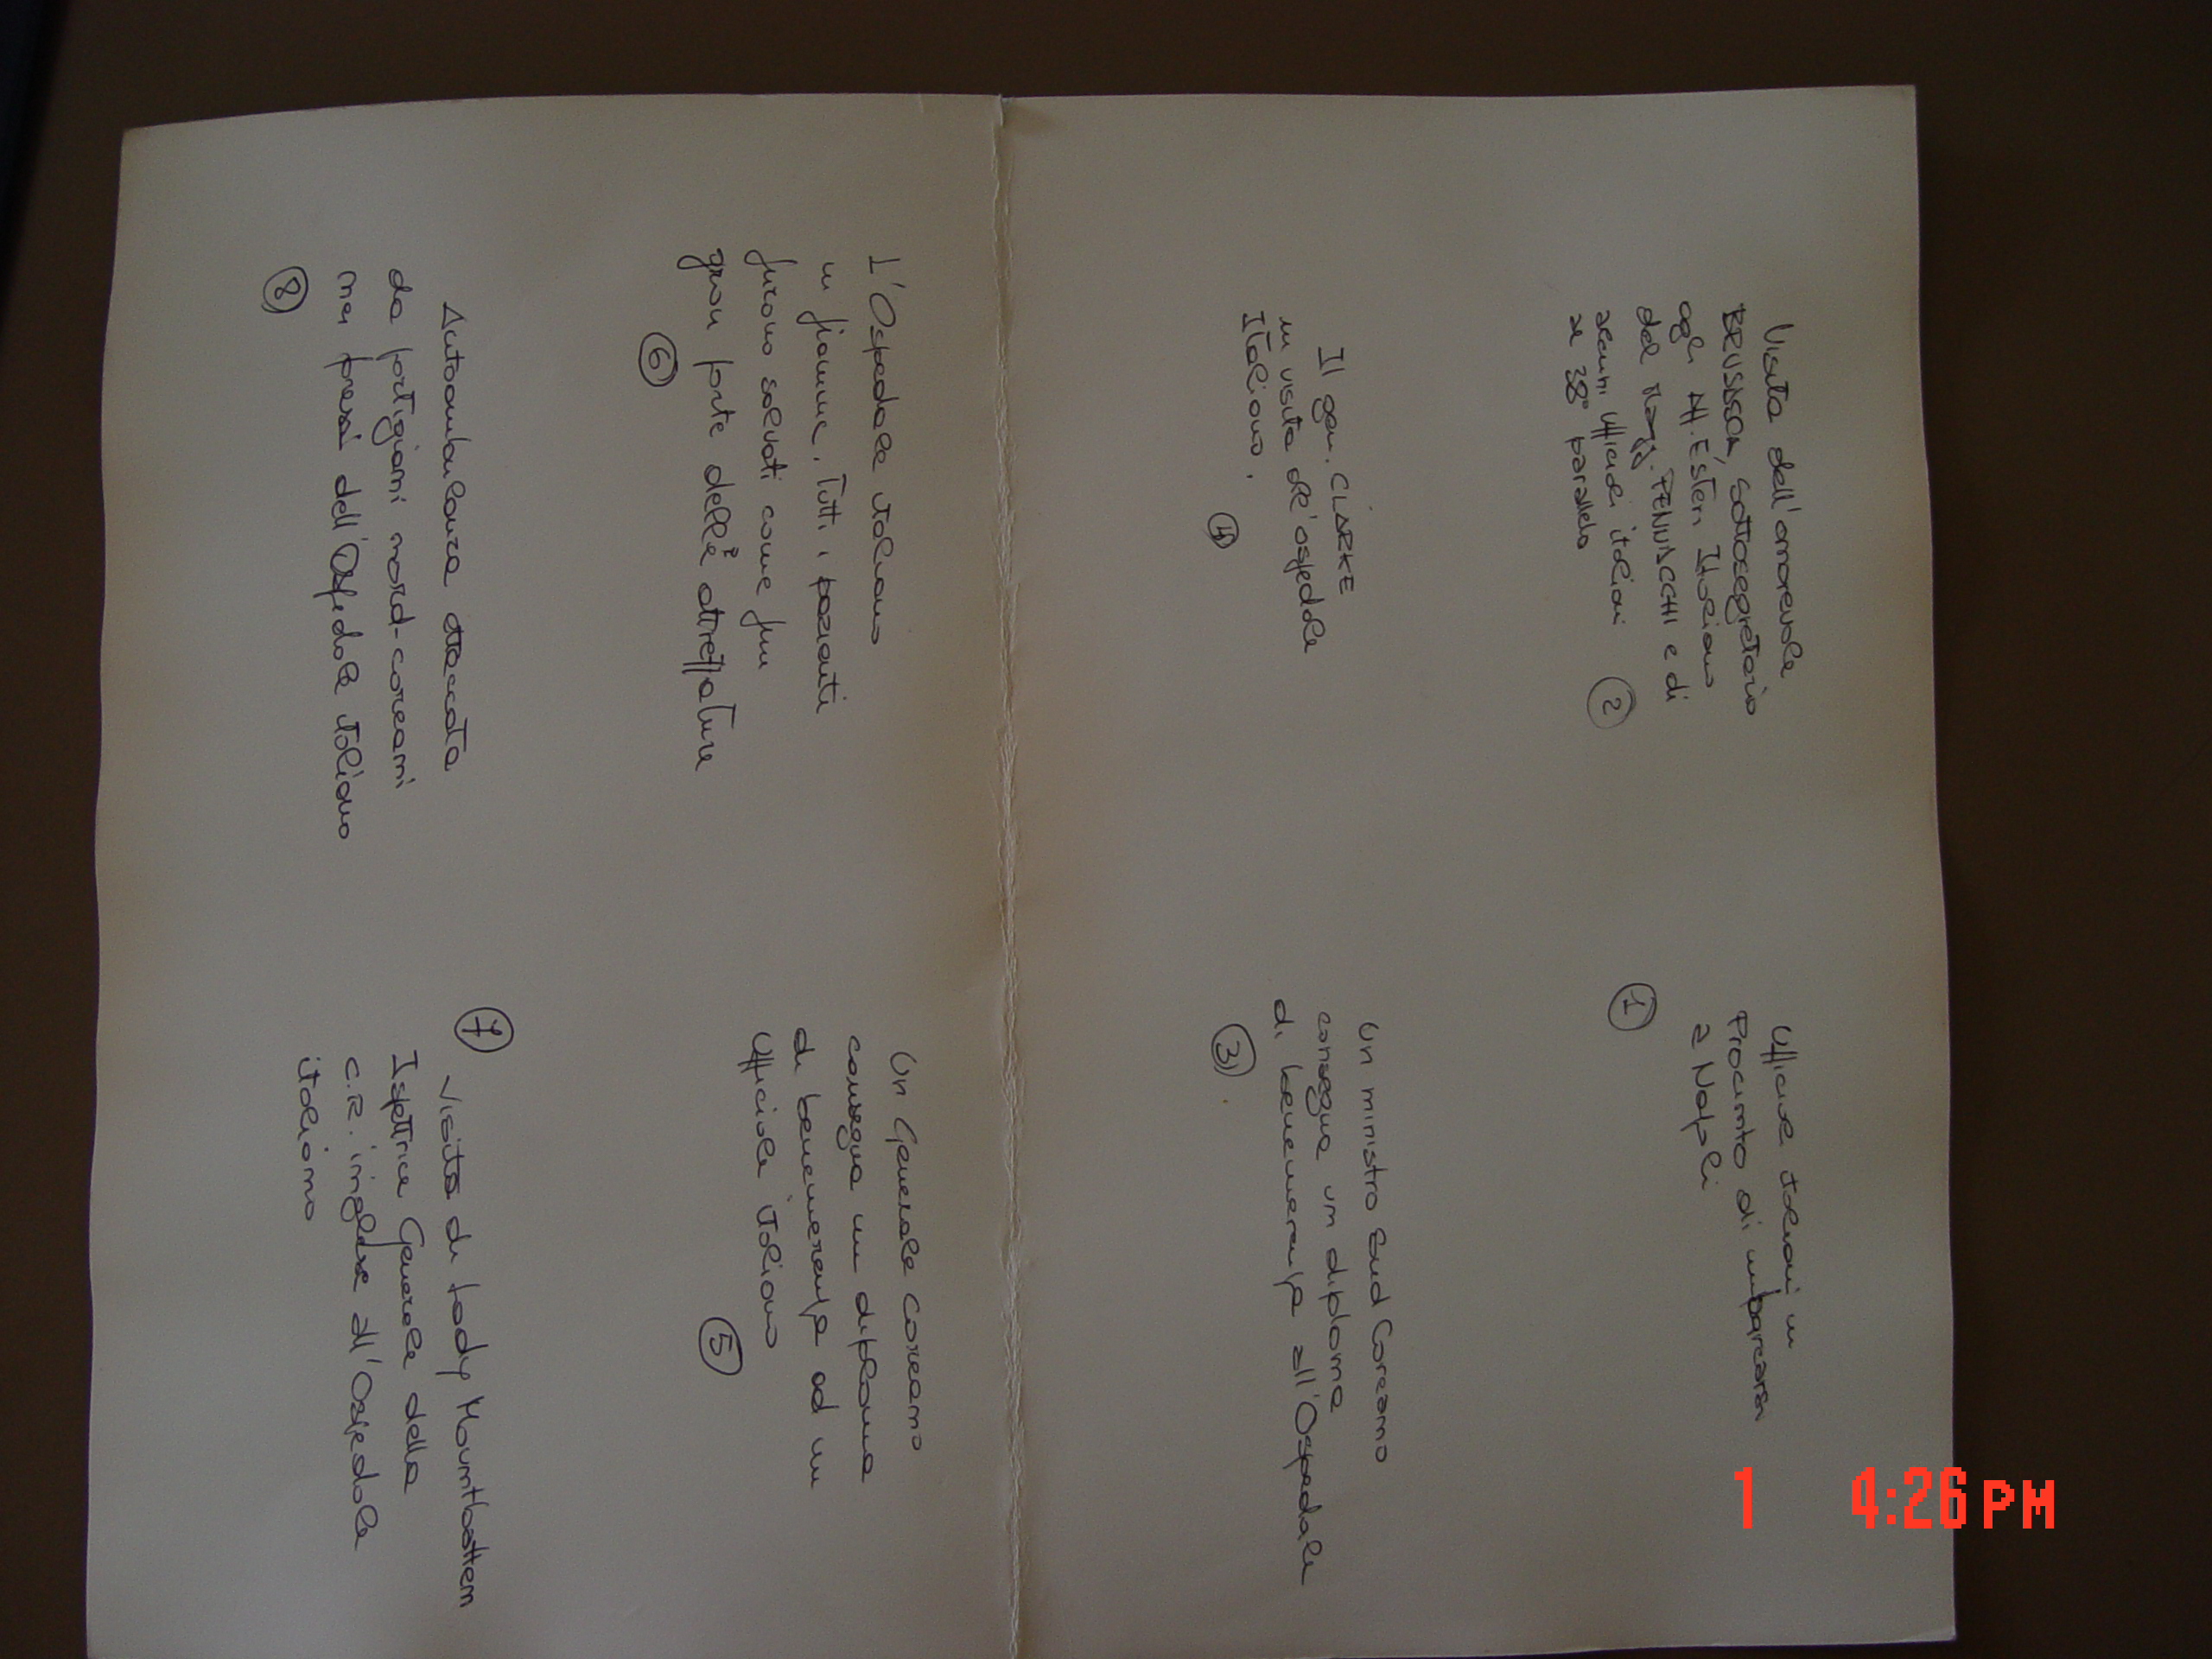 Visita dell'onorevole
BRUSASCA, Sottosegretario
agli Aff. Esteri Italiano
del Magg. PENNACCHI e di
alcuni Ufficiali italiani
al 38° parallelo
2
Ufficiali italiani in
Procinto di imbarcarsi
a Napoli
1
Il gen. CLARKE
in visita all'ospedale
Italiano.
4
Un ministro Sud Coreano
consegna un diploma
di benemerenza all'Ospedale
3
L'Ospedale italiano
in fiamme. Tutti i pazienti
furono salvati come fu
gran parte delle attrezzature
6
Un Generale Coreano
consegna un diploma
di benemerenza ad un
Ufficiale italiano
5
Autoambulanza attaccata
da partigiani nord-coreani
nei pressi dell'Ospedale italiano
8
7
Visita di Lady Mountbattem
Ispettrice Generale della
C.R. inglese all'Ospedale
italiano
1 4:26 PM